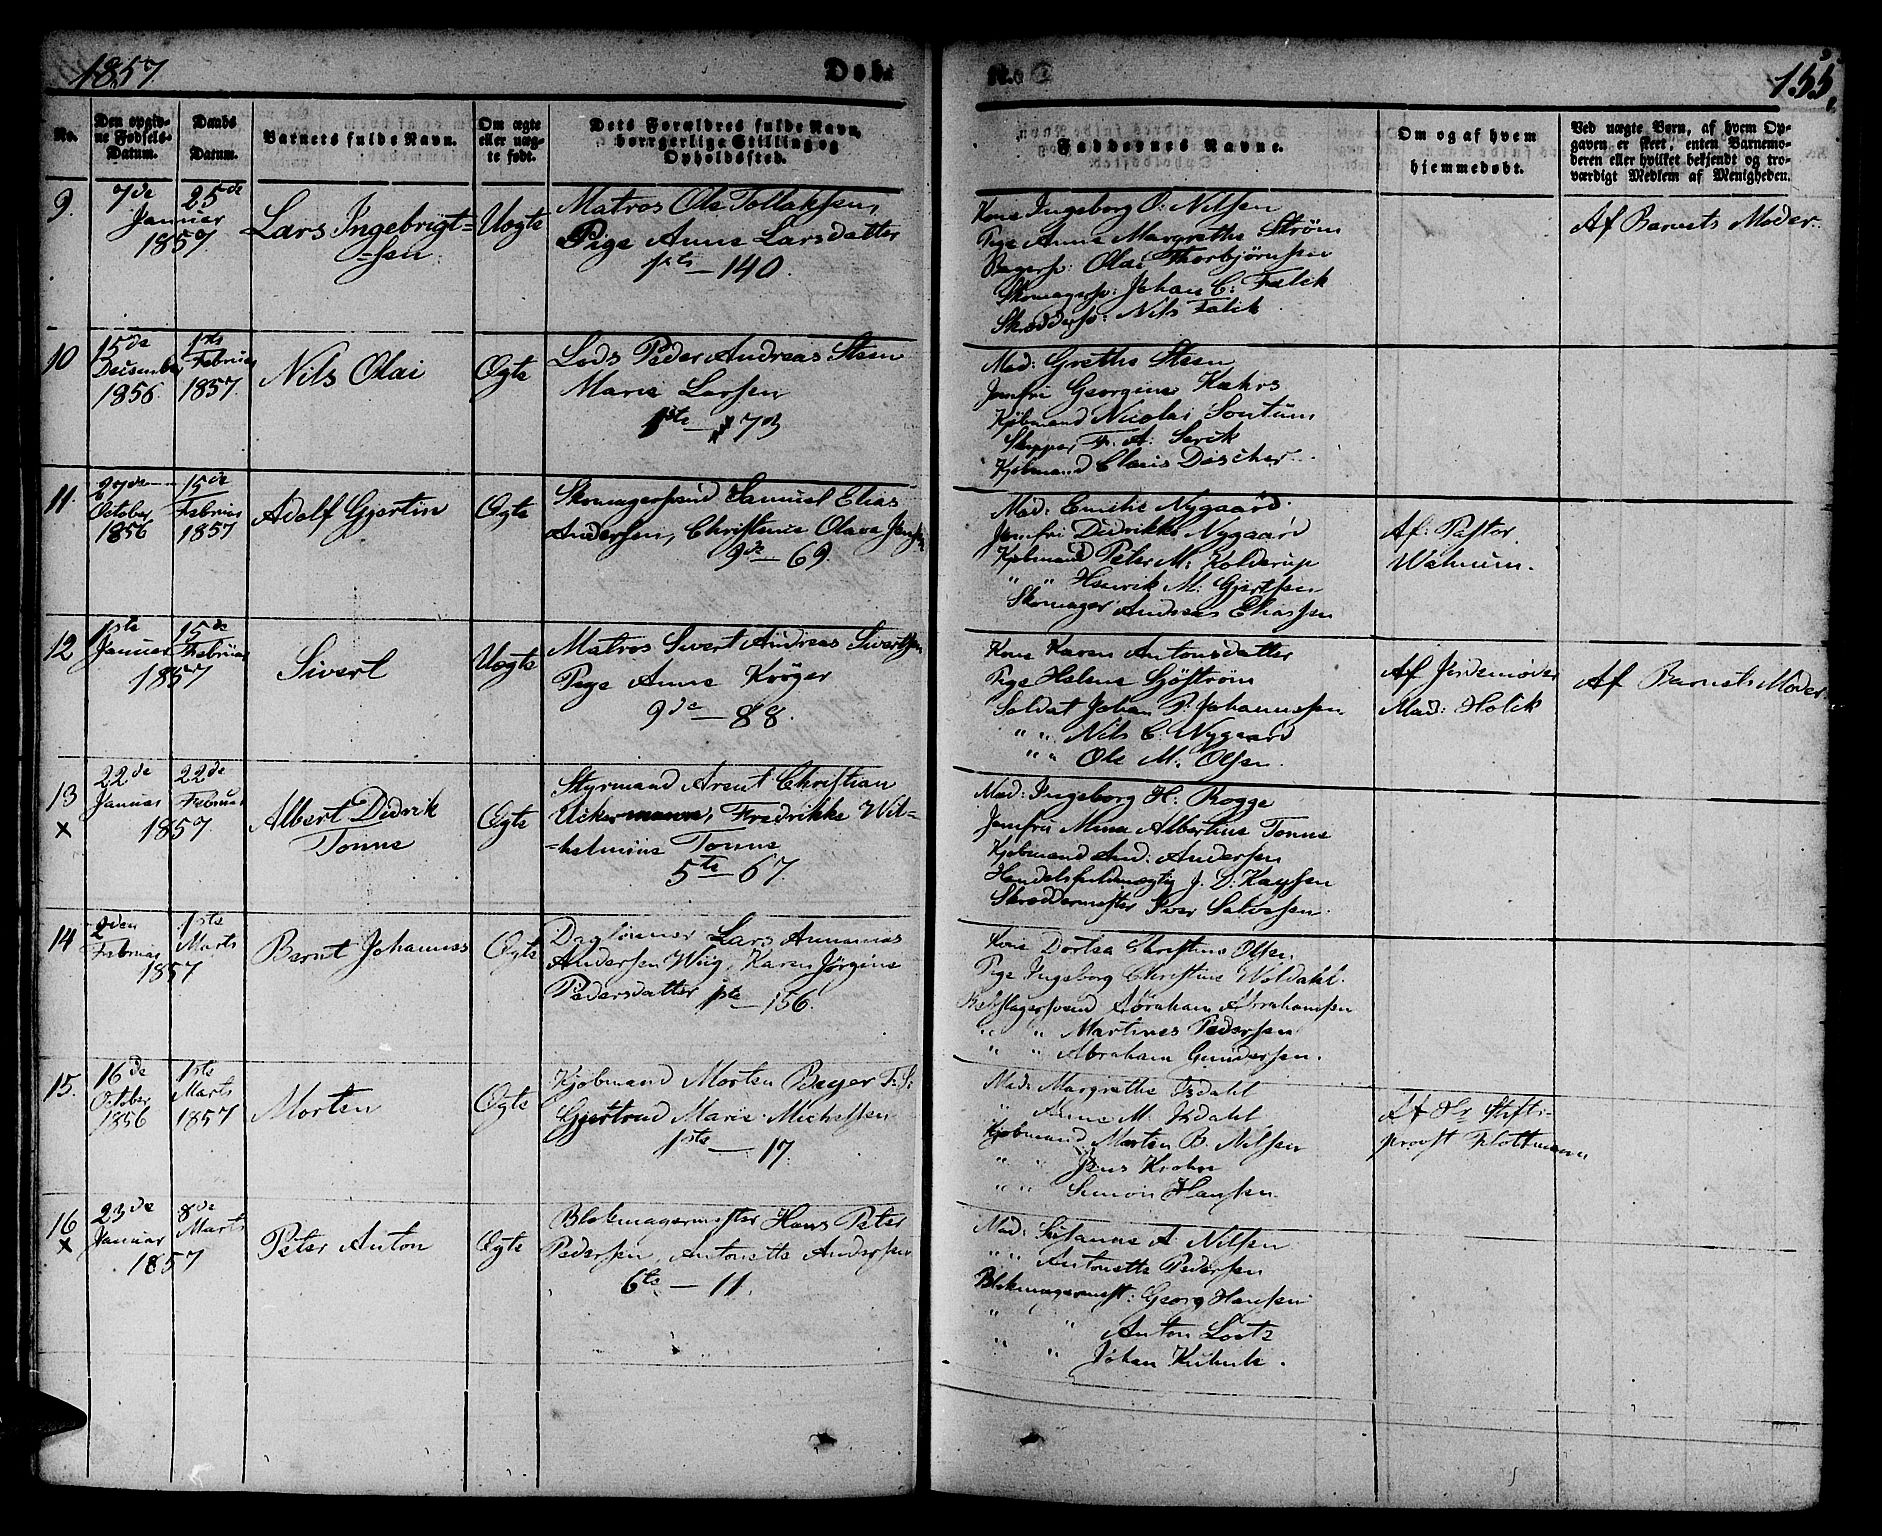 1857.
Døbt
No.
155.
No.
Den opgiv-
ne Fødsels-
Datum.
Daabs
Datum.
Barnets fulde Navn.
Om ægte
eller uæg-
te født.
Dets Forældres fulde Navn,
borgerlige Stilling og
Opholdssted.
Faddernes Navne.
Om og af hvem
hjemmedøbt.
Ved uægte Børn, af hvem Op-
gaven er skeet, enten Barnemo-
deren eller hvilket bekjendt og tro-
værdigt Medlem af Menigheden.
9.
7de
Januar
25de
1857
Lars Ingebrigt-
-sen.
Uegte
Matros Ole Tollaksen,
Pige Anne Larsdatter
1ste — 140.
Kone Ingeborg O. Nilsen
Pige Anne Margrethe Strøm
Bagersv: Olai Thorbjørnsen
Skomagersv: Johan C: Falck
Skræddersv: Nils Falck
Af Barnets Moder.
10
15de
December
1856
1ste
Februar
1857.
Nils Olai
Ægte
Lods Peder Andreas Steen
Marie Larsen
1ste — 73
Mad: Grethe Steen
Jomfru Georgine Kahrs
Kjøbmand Nicolai Sontum
Skipper F. A. Serck
Kjøbmand Claus Discher.
11.
27de
October
1856
15de
Februar
1857
Adolf Gjertin
Ægte
Skomagersvend Samuel Elias
Andersen, Christense Olava Jensen
9de — 69.
Mad: Emilie Nygaard.
Jomfru Didrikke Nygaard
Kjøbmand Peter M. Kolderup
" " Henrik M. Gjertsen
Skomager Andreas Eliassen
Af: Pastor
Walnum.
12
1ste
Januar
15de
Februar
1857
Sivert
Uegte
Matros Sivert Andreas Sivertsen
Pige Anne Krøger
9de — 88.
Kone Karen Antonsdatter
Pige Helene Sjøstrøm
Soldat Johan P. Johannessen
" " Nils C. Nygaard
" " Ole M. Olsen.
Af Jordemoder
Mad: Holck
Af Barnets Moder
13
x
22de
Januar
22de
Februar
1857.
Albert Didrik
Tonne
Ægte
Styrmand Arent Christian
Uckermann, Fredrikke Wil-
-helmine Tonne
5te — 67
Mad: Ingeborg H. Rogge
Jomfru Mina Albertine Tonne
Kjøbmand And: Andersen
Handelsfuldmægtig J. D. Kaysen
Skræddermester Iver Salvesen.
14
2den
Februar
1ste
Marts
1857
Bernt Johannes
Ægte
Daglønner Lars Annanias
Andersen Wiig, Karen Jørgine
Pedersdatter 1ste — 156.
Kone Dortea Christine Olsen
Pige Ingeborg Christine Woldahl.
Rebslagersvend Abraham Abrahamsen
" " Martines Pedersen
" " Abraham Gundersen.
15.
16de
October
1856
1ste
Marts
1857
Morten
Ægte
Kjøbmand Morten Beyer F. S:
Gjertrud Marie Michelsen
1ste — 17.
Mad: Margrethe Isdahl
" Anne M. Isdahl
Kjøbmand Morten B. Nilsen
" " Jens Krohn
" " Simon Hansen.
Af Hr Stifts-
provst Flottmann
16
x
23de
Januar
8de
Marts
1857
Peter Anton
Ægte
Blokmagermester Hans Peter
Pedersen, Antonette Andersen
6te — 11.
Mad: Susanne A. Nilsen
" " Antonette Pedersen
Blokmagermest: Georg Hansen
" " Anton Lootz
" " Johan Kuhnle.